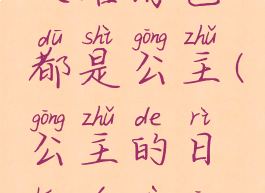 dū shì gōng zhǔ
都是公主(
gōng zhǔ de rì
公主的日